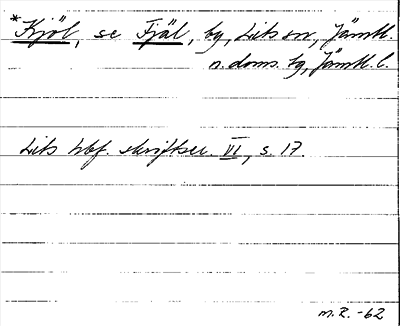 *Kjöl, se Fjäl, by, Lits sn, Jämtl.
n. doms. tg, Jämtl. l.
Lits hbf. skriftser. VI, s. 17.
M.R. -62